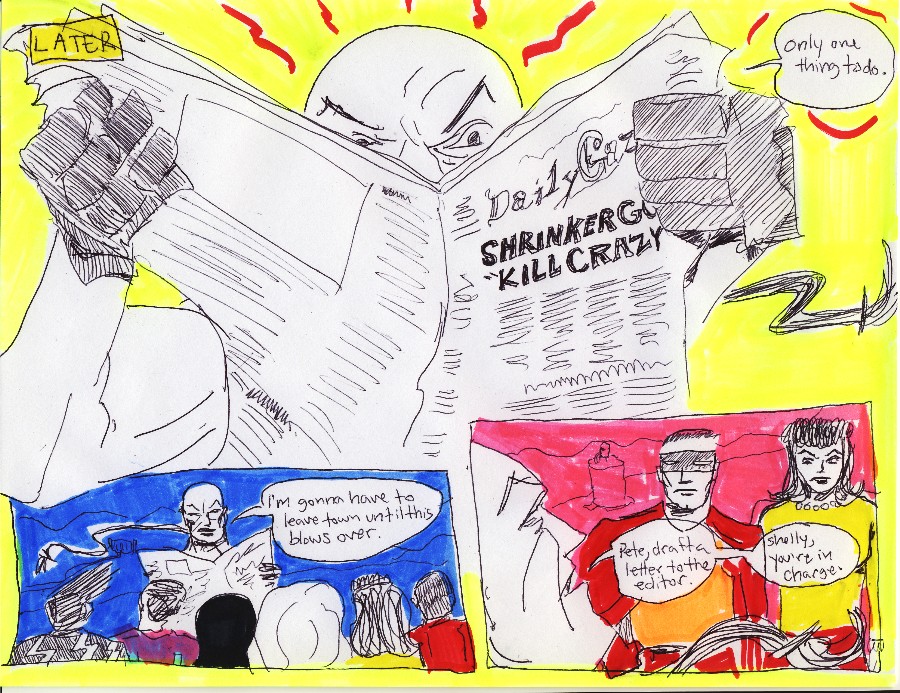 LATER
Only one
thing to do.
Daily Gaz
SHRINKER GU
KILL CRAZY
I'm gonna have to
leave town until this
blows over.
Pete, draft a
letter to the
editor.
Shelly,
you're in
charge.